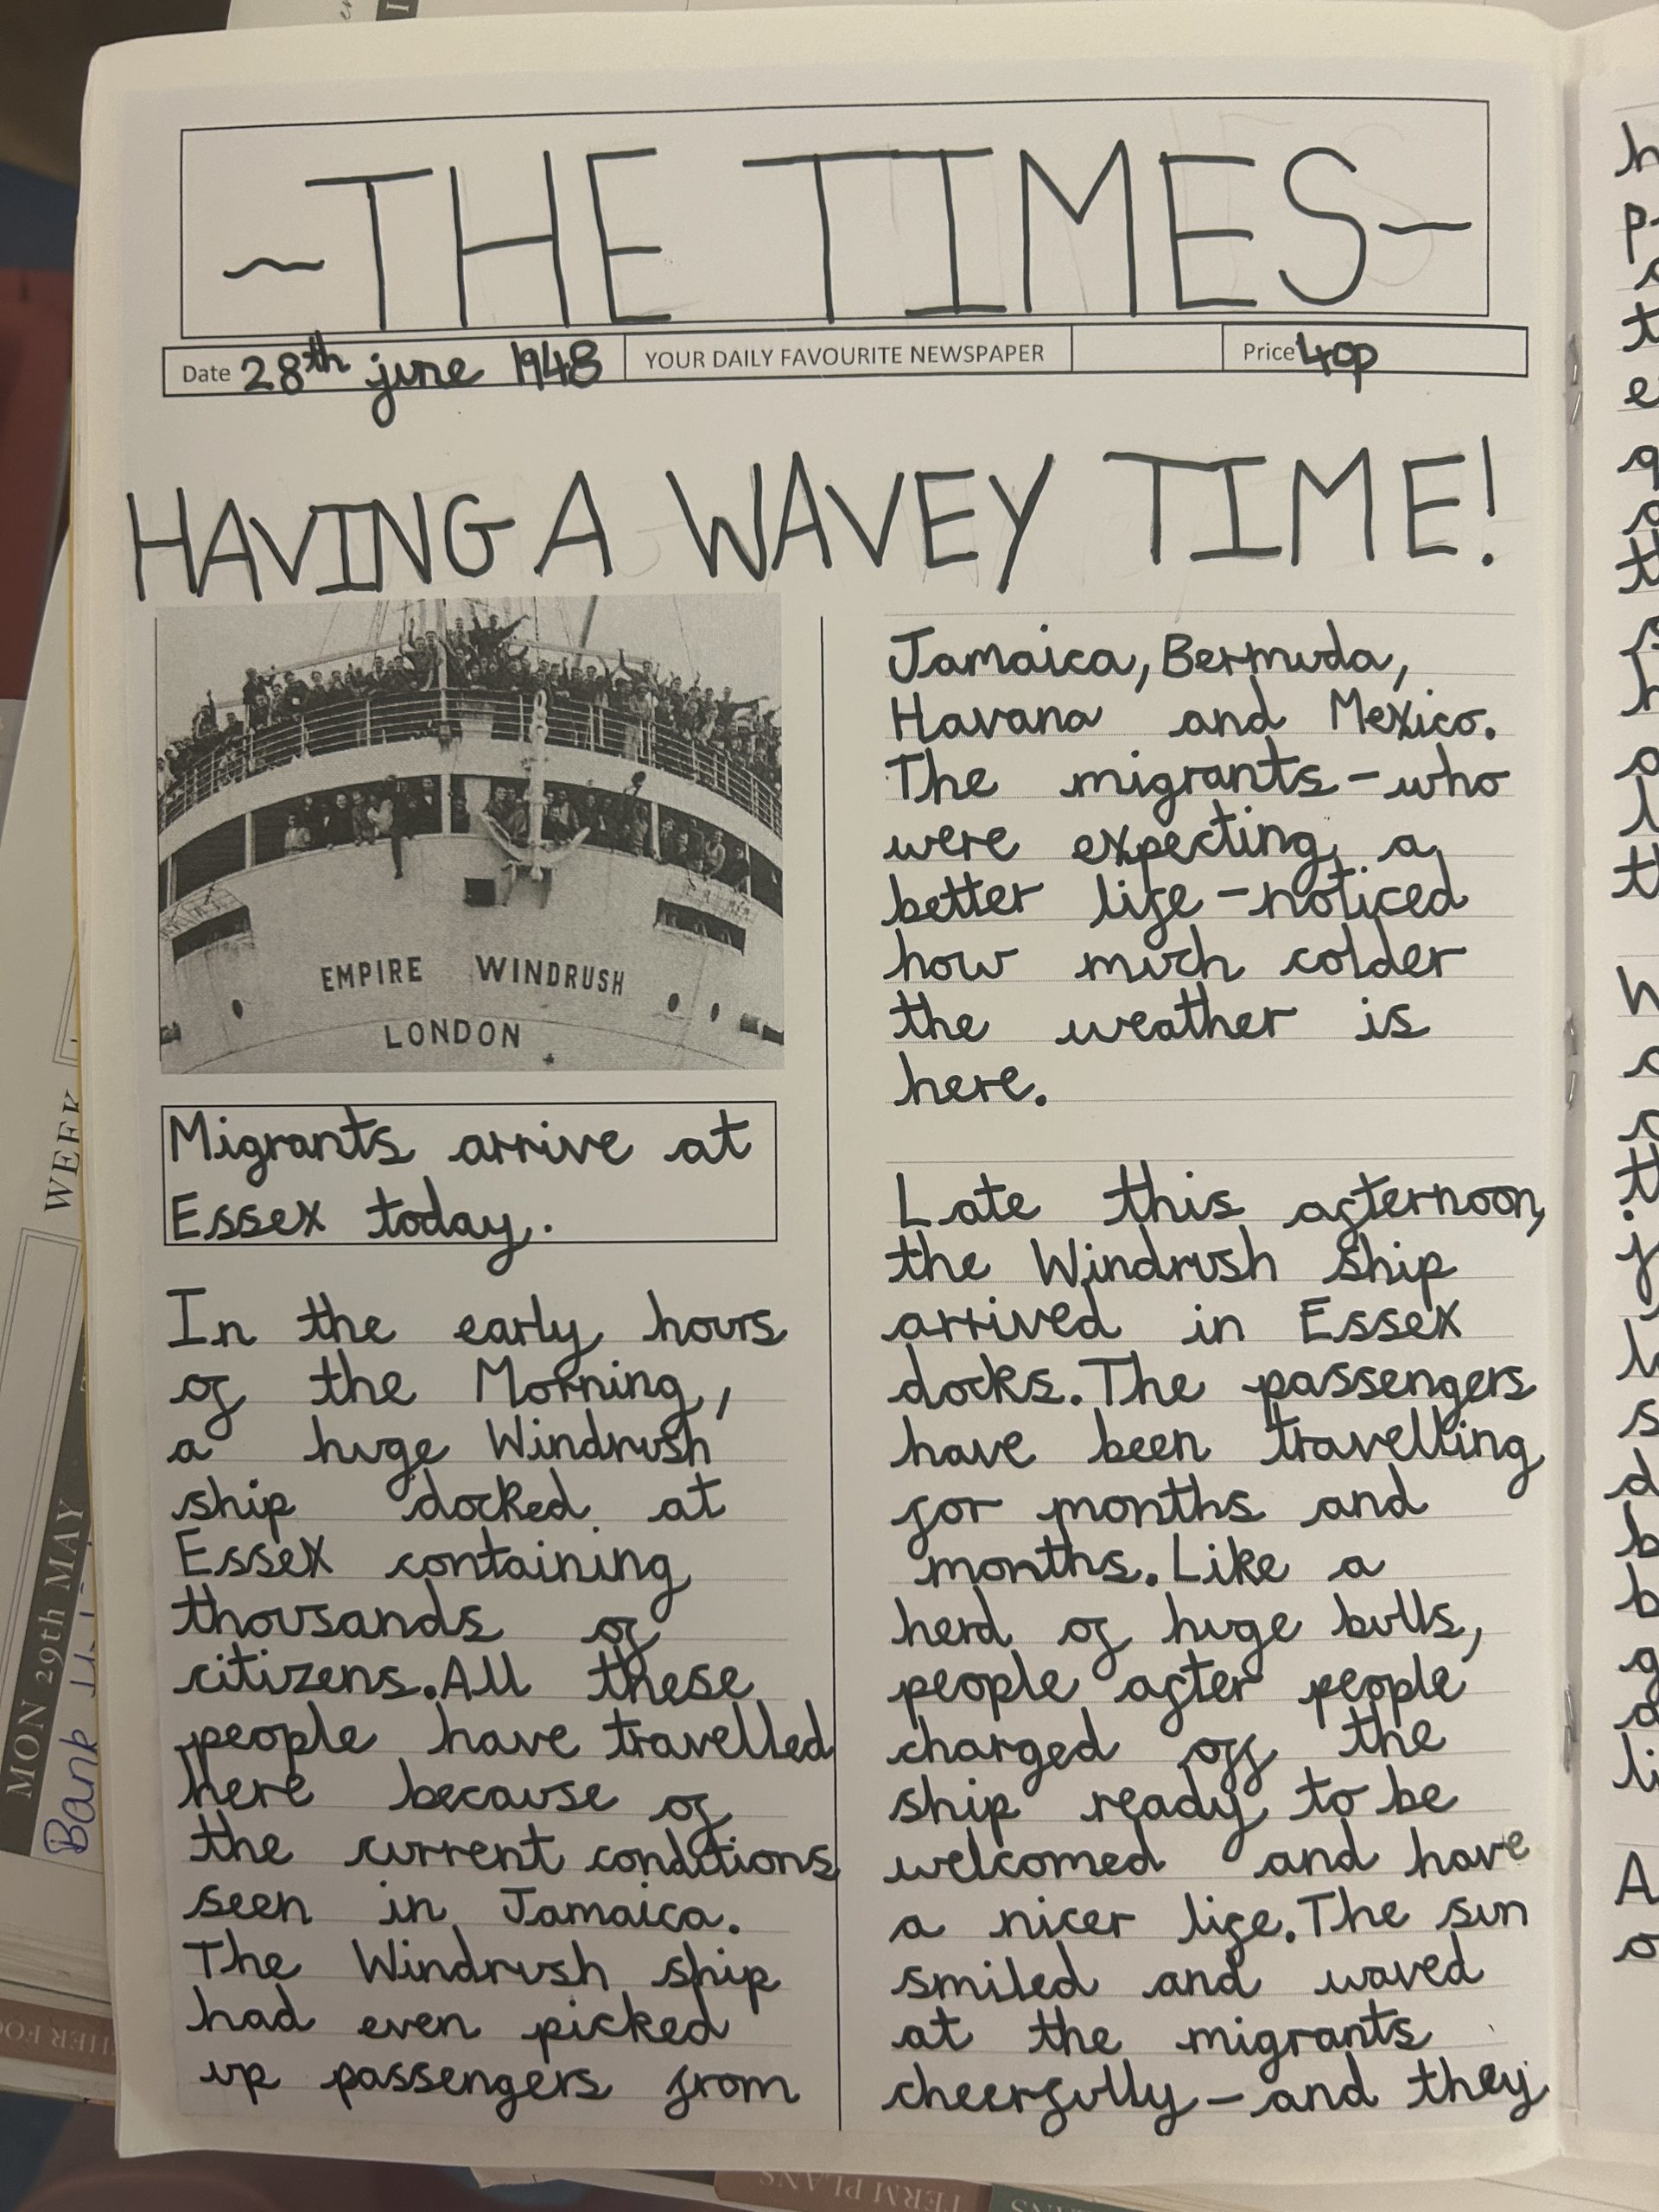 ~THE TIMES~
Date 28th june 1948
YOUR DAILY FAVOURITE NEWSPAPER
Price 40p
HAVING A WAVEY TIME!
EMPIRE WINDRUSH
LONDON
Migrants arrive at
Essex today.
In the early hours
of the Morning,
a huge Windrush
ship docked at
Essex containing
thousands of
citizens. All these
people have travelled
here because of
the current conditions
seen in Jamaica.
The Windrush ship
had even picked
up passengers from
Jamaica, Bermuda,
Havana and Mexico.
The migrants - who
were expecting a
better life - noticed
how much colder
the weather is
here.
Late this afternoon,
the Windrush ship
arrived in Essex
docks. The passengers
have been travelling
for months and
months. Like a
herd of huge bulls,
people after people
charged off the
ship ready to be
welcomed and have
a nicer life. The sun
smiled and waved
at the migrants
cheerfully - and they
WEEK
MON 29th MAY
Bank
TERM PLANS